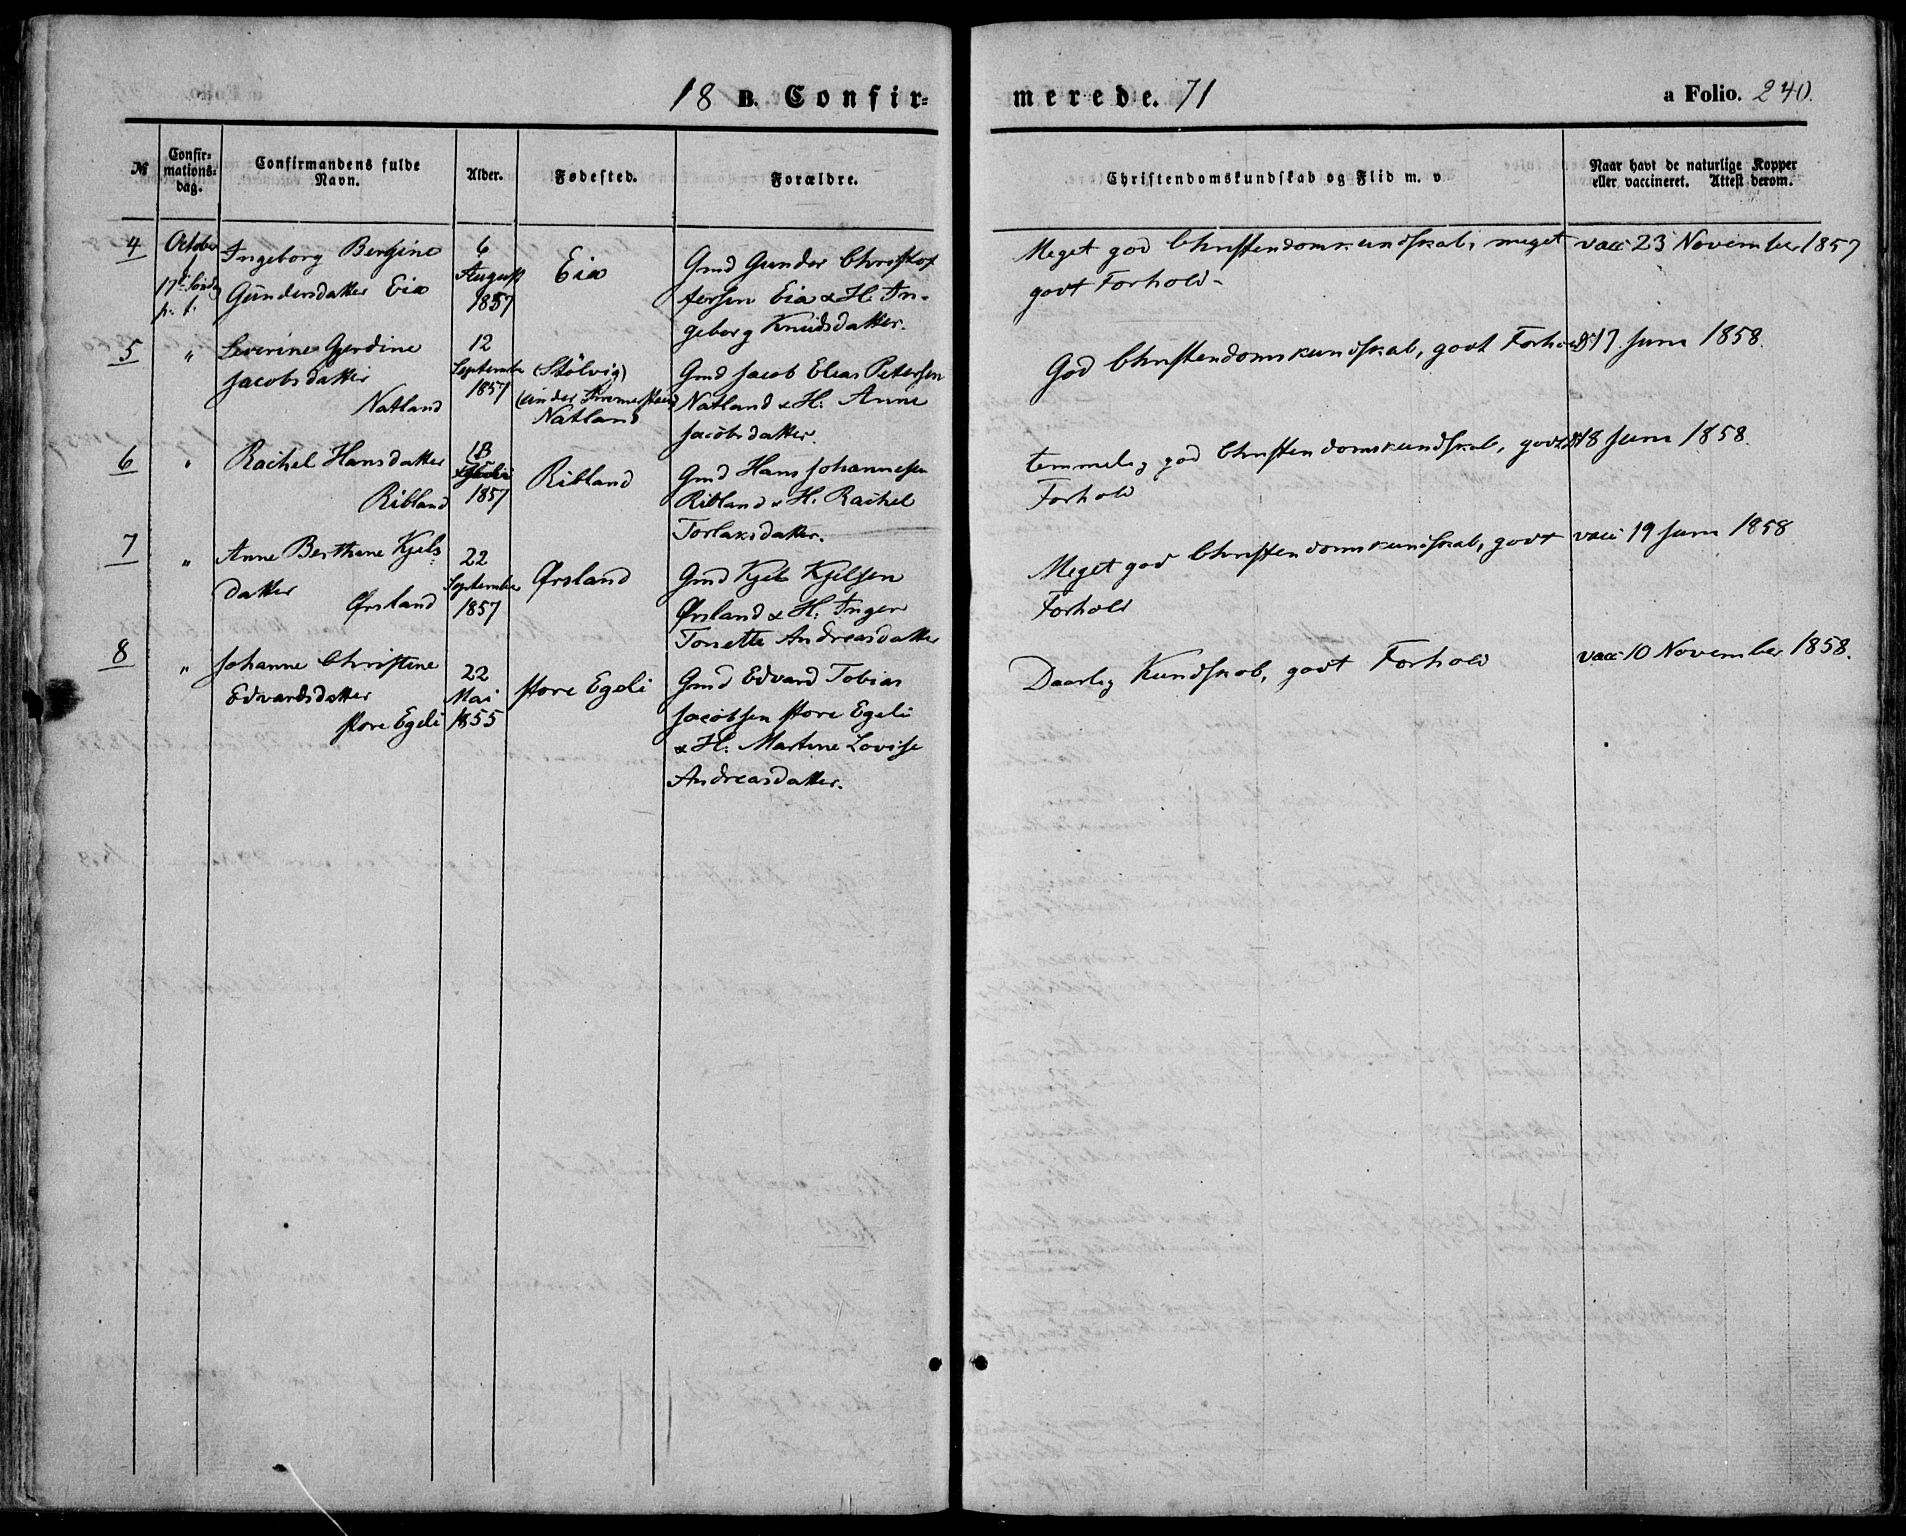 18 B. Confir-
merede. 71
a Folio. 240.
№
Confir-
mations-
dag.
Confirmandens fulde
Navn.
Alder.
Fødested.
Forældre.
Christendomskundskab og Flid m. v
Naar havt de naturlige Kopper
eller vaccineret. Attest derom.
4
October
1
17de Søndag
p. t.
Ingeborg Bergine
Gundersdatter Eia
6
August
1857
Eia
Gmd Gunder Christof
fersen Eia & H. In-
geborg Knudsdatter.
Meget god Christendomskundskab, meget
godt Forhold
vacc 23 November 1857
5
"
Severine Gjerdine
Jacobsdatter
Natland
12
September
1857
(Stølvig)
(under
Natland
Gmd Jacob Elias Petersen
Natland & H. Anne
Jacobsdatter.
God Christendomskundskab, godt Forhold
17 Juni 1858.
6
"
Rachel Hansdatter
Ribland
13
Juli
1857
Ribland
Gmd Hans Johannesen
Ribland & H. Rachel
Torlaksdatter.
temmelig god Christendomskundskab, godt
Forhold
18 Juni 1858.
7
"
Anne Berthine Kjels
datter
Ørsland
22
September
1857
Ørsland
Gmd Kjel Kjelsen
Ørsland & H. Inger
Tonette Andreasdatter
Meget god Christendomskundskab, godt
Forhold
vacc 19 Juni 1858
8
"
Johanne Christine
Edvardsdatter
store Egeli
22
Mai
1855
store Egeli
Gmd Edvard Tobias
Jacobsen store Egeli
& H. Martine Lovise
Andreasdatter.
Daarlig Kundskab, godt Forhold
vacc 10 November 1858.